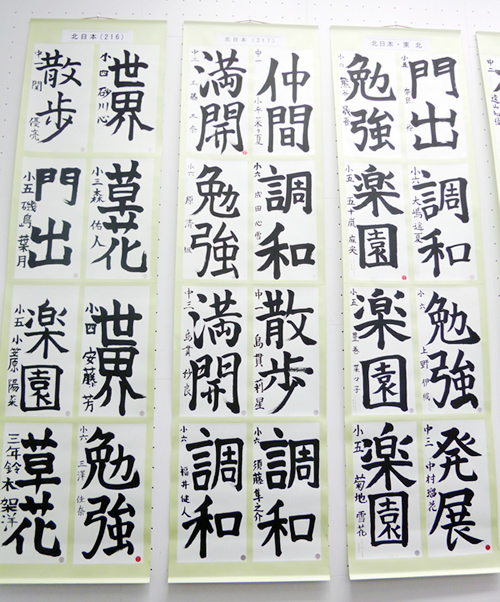 北日本(216)
世界
小四 砂川心
散歩
中一 関 優亮
草花
小三 森 佑人
門出
小五 磯島葉月
世界
小四 安藤 芳
楽園
小五 小笠原陽菜
勉強
小六 三澤
草花
三年 鈴木架洋
北日本(217)
仲間
中一
満開
中三 工藤
調和
小六 成田心雪
勉強
小六 原
散歩
中一 島貫莉星
満開
中三 島貫紗良
調和
小六 須藤隼之介
調和
小六 福井健人
北日本・東北
門出
小五
勉強
小六
調和
小六 大嶋遥夏
楽園
小五 五十嵐麻央
勉強
小六 上野伊織
楽園
小五 菜々子
発展
中三 中村瑠花
楽園
小五 菊地雪花